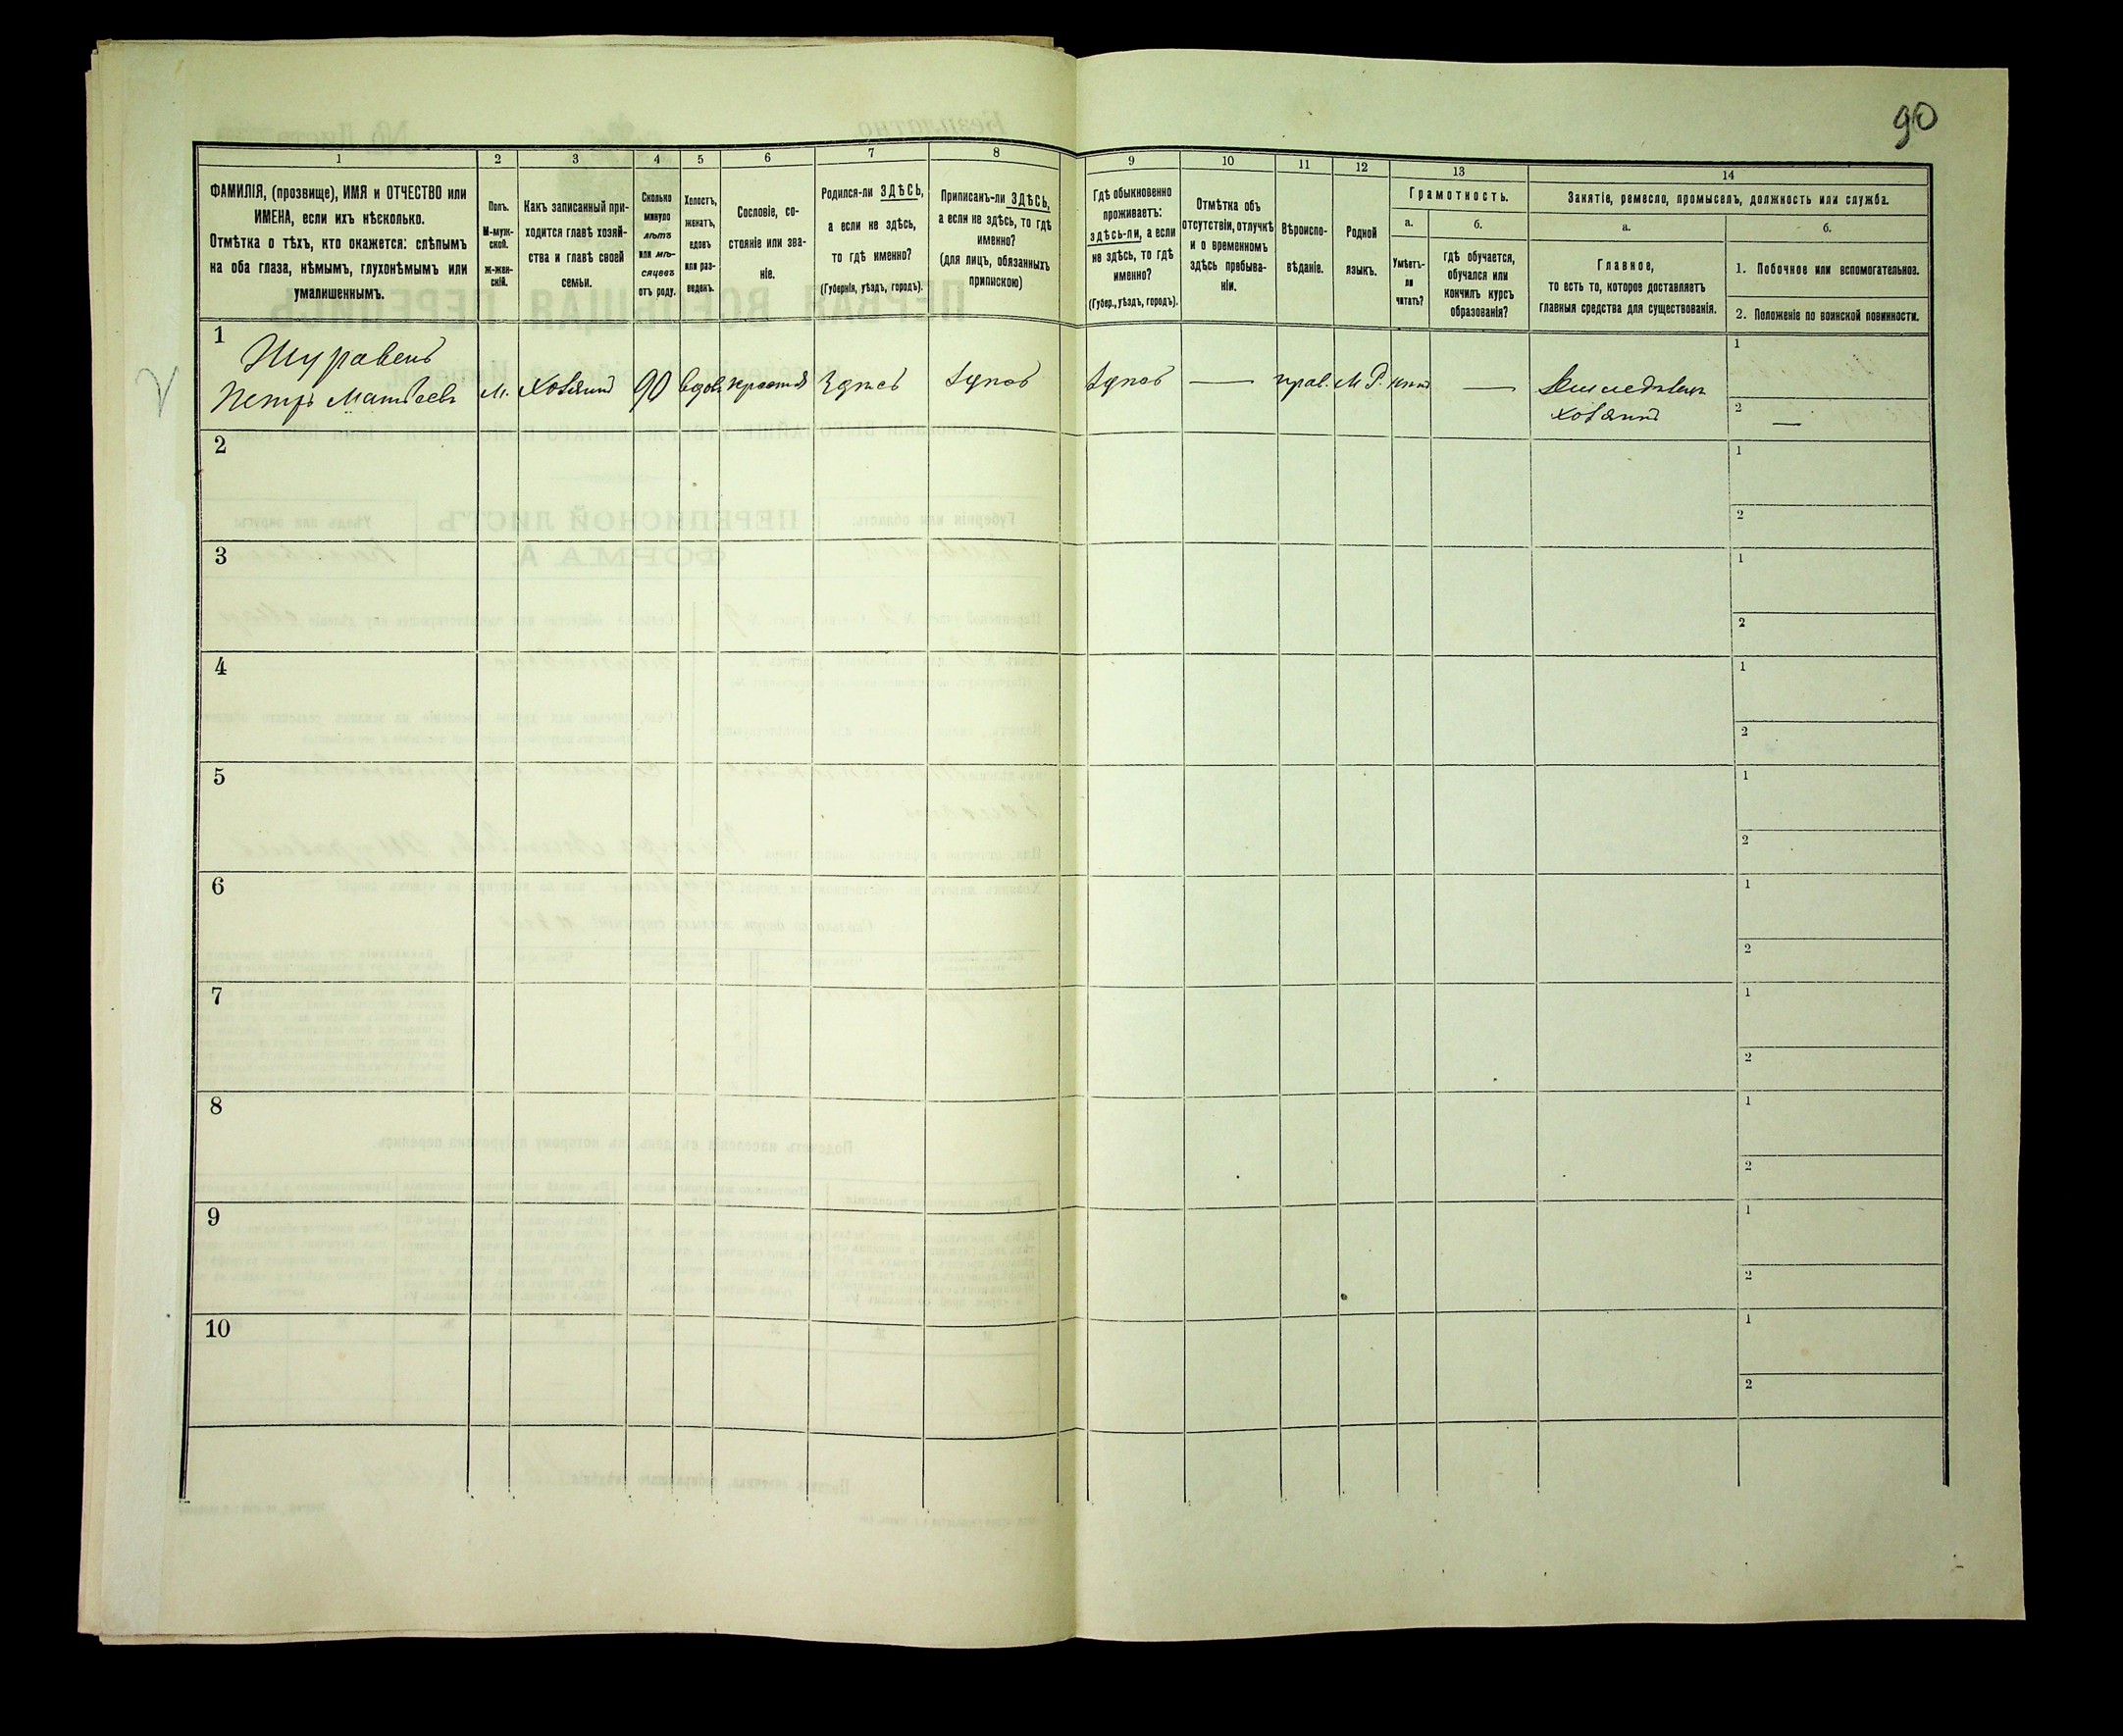 90
1
2
3
4
5
6
7
8
9
10
11
12
13
14
ФАМИЛІЯ, (прозвище), ИМЯ и ОТЧЕСТВО или
ИМЕНА, если ихъ нѣсколько.
Отмѣтка о тѣхъ, кто окажется: слѣпымъ
на оба глаза, нѣмымъ, глухонѣмымъ или
умалишеннымъ.
Полъ.
М-муж-
ской.
Ж-жен-
скій.
Какъ записанный при-
ходится главѣ хозяй-
ства и главѣ своей
семьи.
Сколько
минуло
лѣтъ
или мѣ-
сяцевъ
отъ роду.
Холостъ,
женатъ,
вдовъ
или раз-
веденъ.
Сословіе, со-
стояніе или зва-
ніе.
Родился-ли ЗДѢСЬ,
а если не здѣсь,
то гдѣ именно?
(Губернія, уѣздъ, городъ).
Приписанъ-ли ЗДѢСЬ,
а если не здѣсь, то гдѣ
именно?
(для лицъ, обязанныхъ
припискою)
Гдѣ обыкновенно
проживаетъ:
здѣсь-ли, а если
не здѣсь, то гдѣ
именно?
(Губер., уѣздъ, городъ).
Отмѣтка объ
отсутствіи, отлучкѣ
и о временномъ
здѣсь пребыва-
ніи.
Вѣроиспо-
вѣданіе.
Родной
языкъ.
Грамотность.
а.
Умѣетъ-
ли
читать?
б.
гдѣ обучается,
обучался или
кончилъ курсъ
образованія?
Занятіе, ремесло, промыселъ, должность или служба.
а.
Главное,
то есть то, которое доставляетъ
главныя средства для существованія.
б.
1. Побочное или вспомогательное.
2. Положеніе по воинской повинности.
1
Журавель
Петръ Матвѣевъ
М.
хозяинъ
90
вдовъ
Здѣсь
здѣсь
здѣсь
—
прав.
М Р.
—
хозяинъ
1
2
—
2
1
2
3
1
2
4
1
2
5
1
2
6
1
2
7
1
2
8
1
2
9
1
2
10
1
2